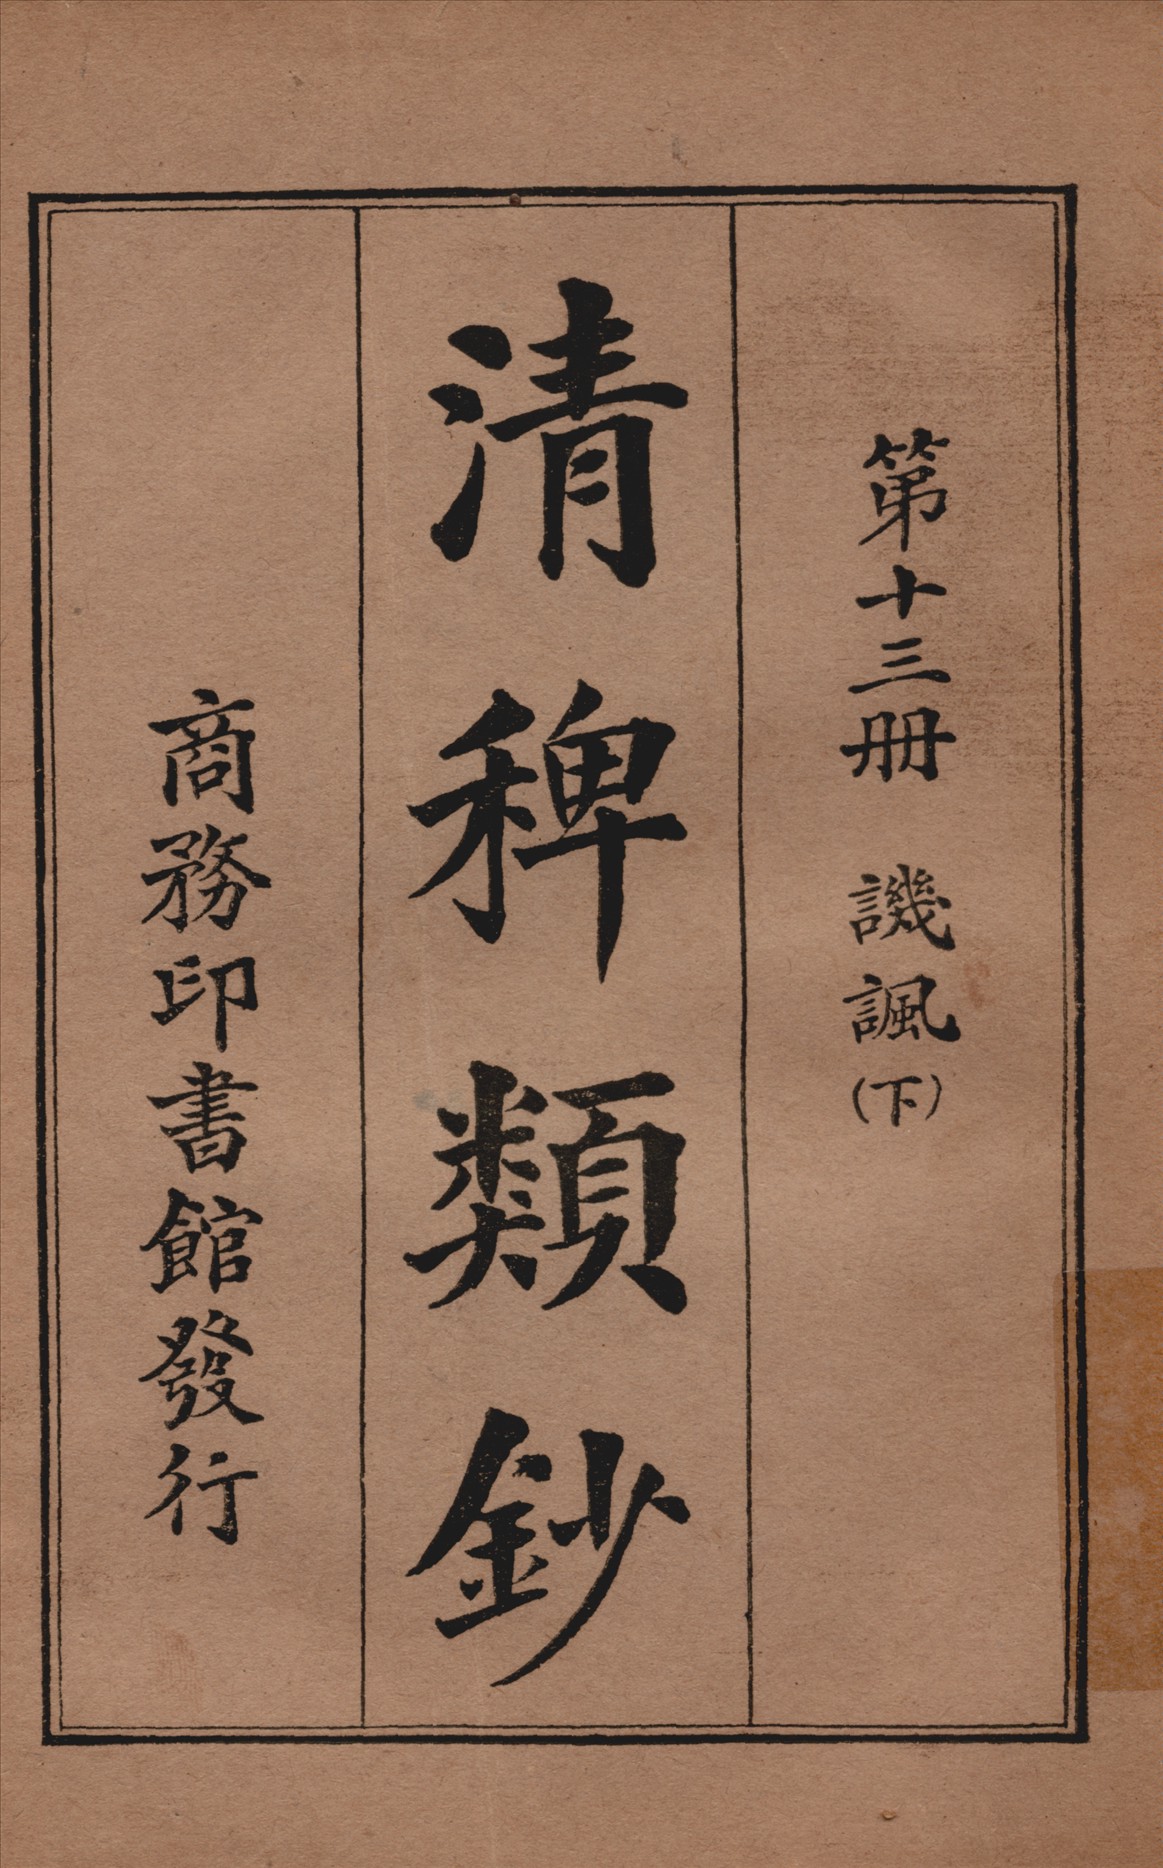 第十三册　譏諷（下）
清稗類鈔
商務印書館發行